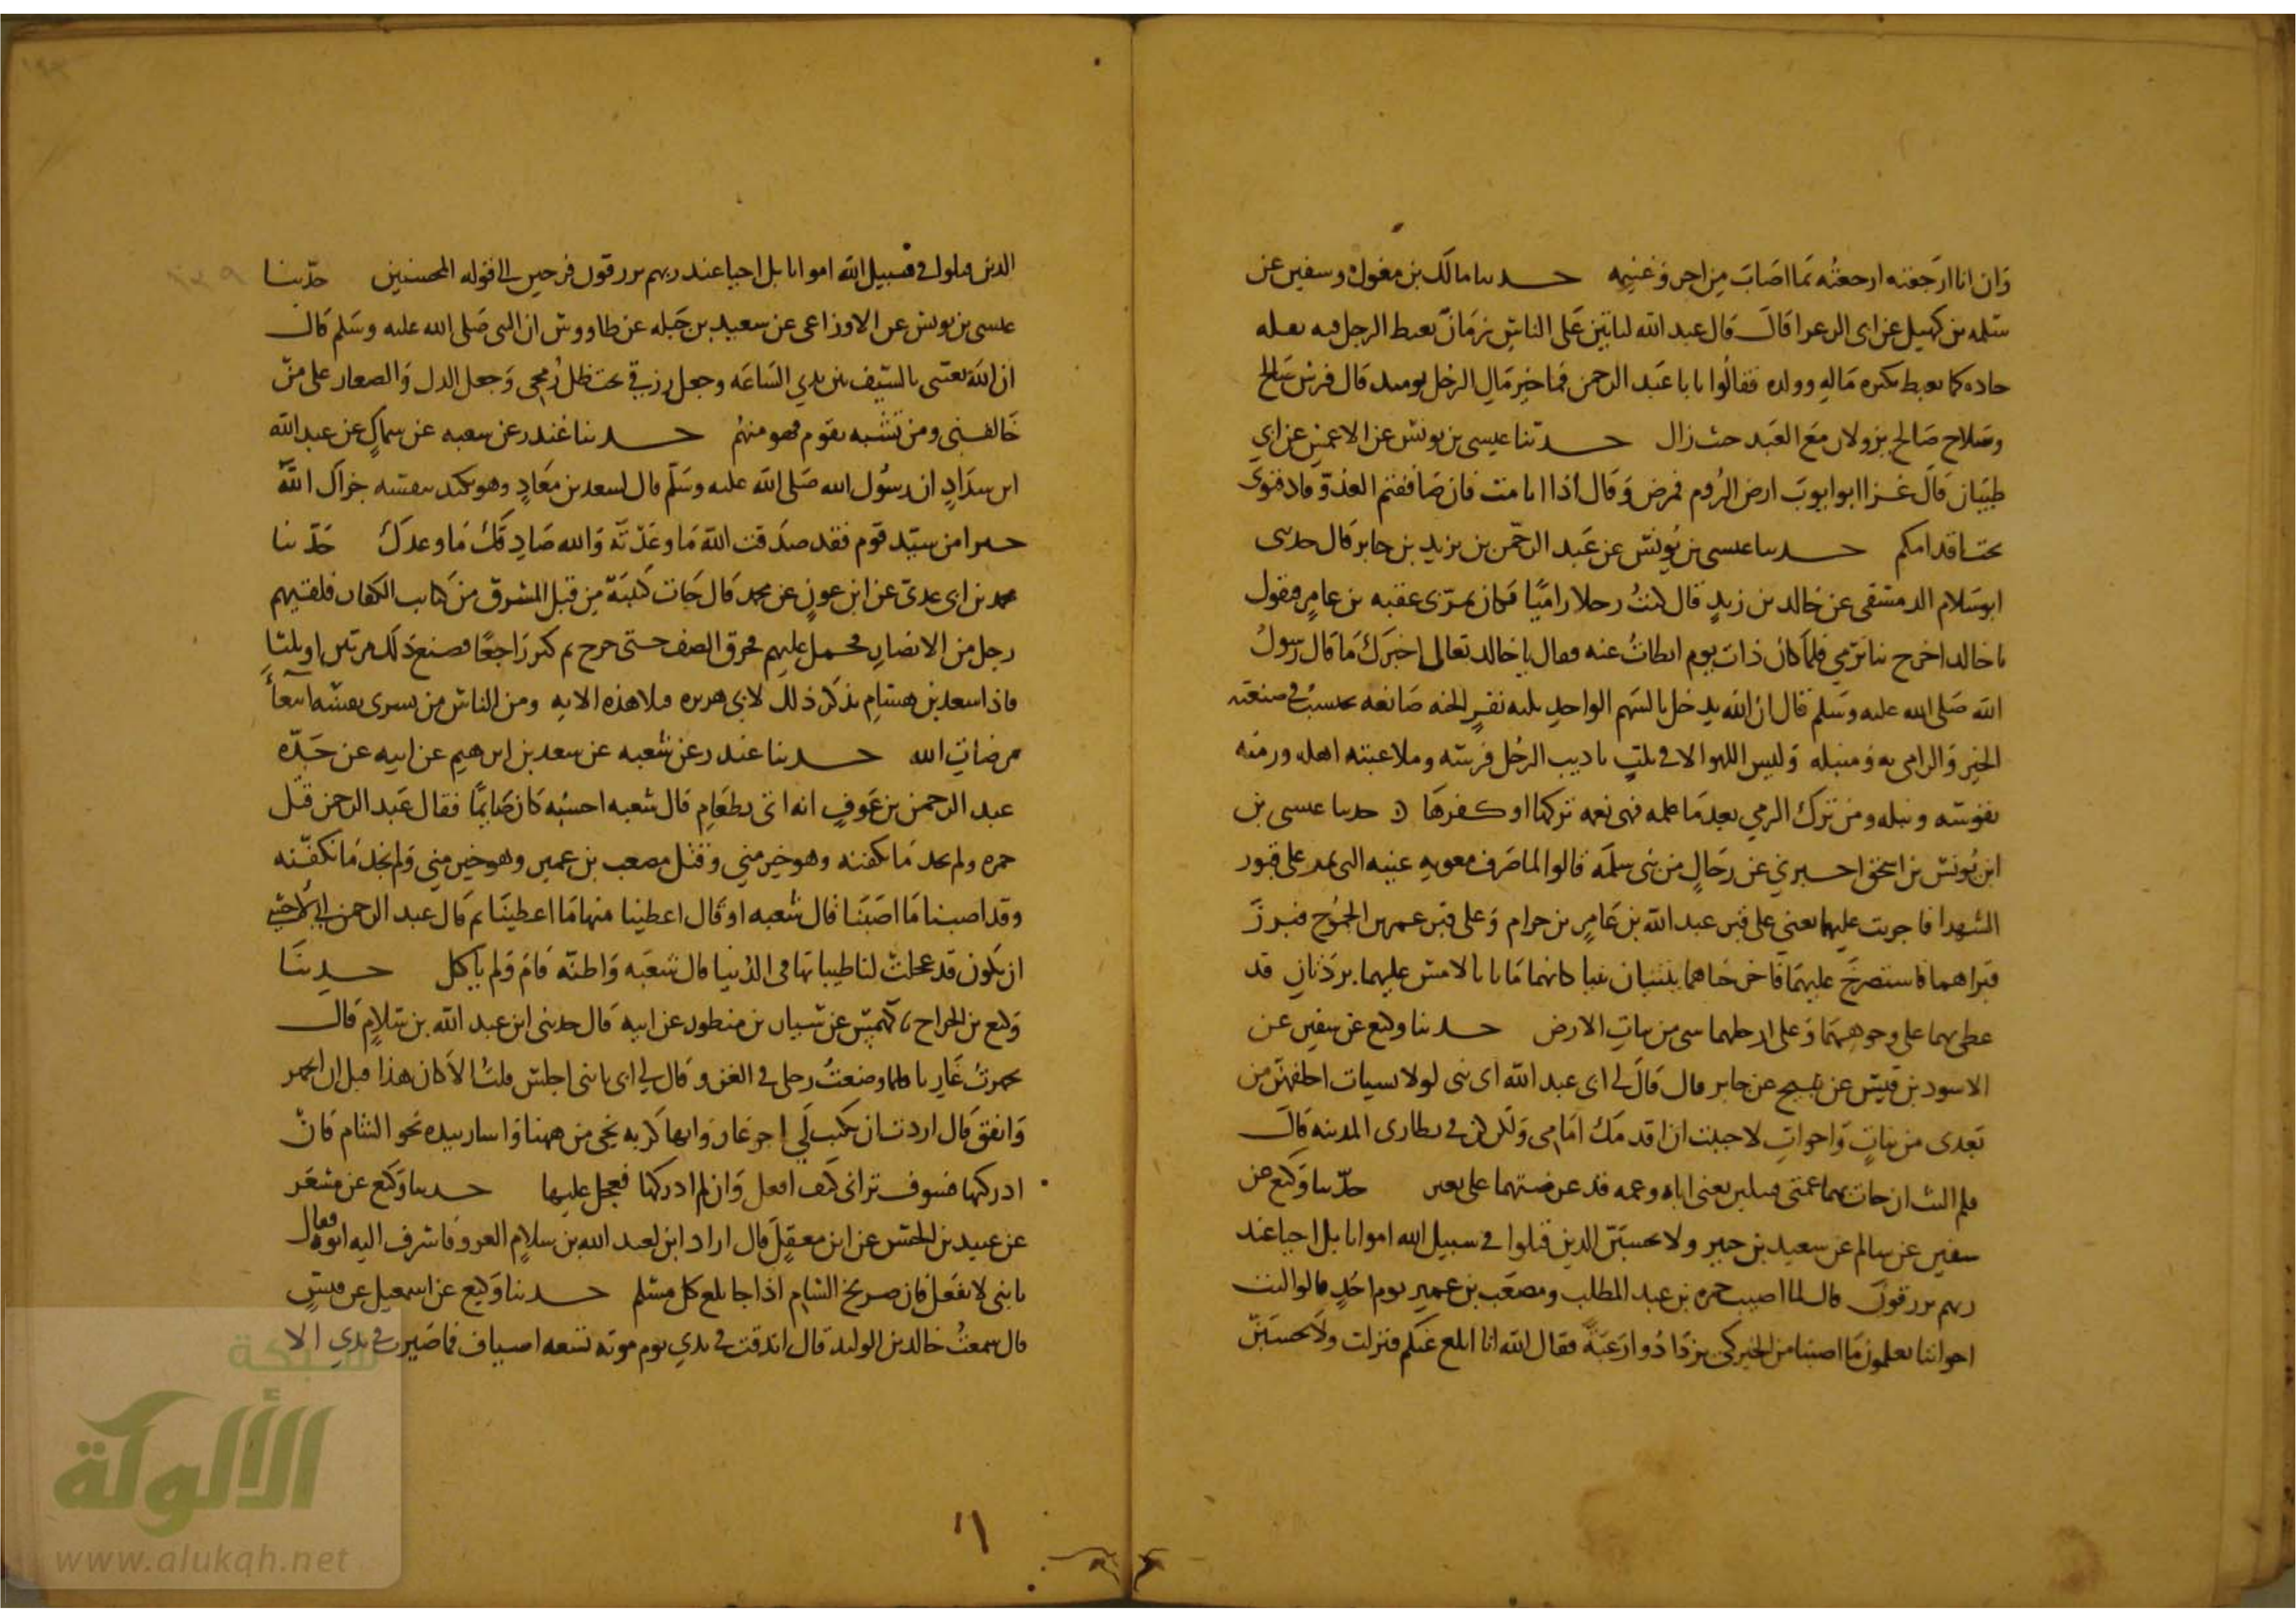 وان انا ارجعته ارجعته بما اصاب من اجر وغنيمه حدثنا مالك بن مغول وسفين عن
سلمه بن كهيل عن ابى الزعرا قال قال عبد الله لياتين على الناس زمان يغبط الرجل فيه بقله
حاده كما يغبط بكثره ماله وولده فقالوا يا با عبد الرحمن فما خير مال الرجل يومئذ قال فرس صالح
وسلاح صالح يزولان مع العبد حيث زال حدثنا عيسى بن يونس عن الاعمش عن ابي
ظبيان قال غزا ابو ايوب ارض الروم فمرض وقال اذا انا مت فان صاففتم العدو فادفنونى
تحت اقدامكم حدثنا عيسى بن يونس عن عبد الرحمن بن يزيد بن جابر قال حدثنى
ابو سلام الدمشقى عن خالد بن زيد قال كنت رجلا راميا فكان يمر بى عقبه بن عامر فيقول
يا خالد اخرج بنا نرمي فلما كان ذات يوم ابطات عنه فقال يا خالد تعال اخبرك ما قال رسول
الله صلى الله عليه وسلم قال ان الله يدخل بالسهم الواحد ثلثه نفر الجنه صانعه يحتسب في صنعته
الخير والرامى به ومنبله وليس اللهو الا في ثلث تاديب الرجل فرسه وملاعبته اهله ورميه
بقوسه ونبله ومن ترك الرمي بعد ما علمه فهى نعمه تركها او كفرها حدثنا عيسى بن
ابن يونس بن اسحق اخبرني عن رجال من بنى سلمه قالوا لما صرف معويه عينه التى تمر على قبور
الشهدا فاجريت عليهما يعني على قبر عبد الله بن عامر بن حرام وعلى قبر عمرو بن الجموح فبرز
قبراهما فاستصرخ عليهما فاخرجناهما يتثنيان تثنيا كانهما ماتا بالامس عليهما بردتان قد
غطى بهما على وجوههما وعلى ارجلهما شى من نبات الارض حدثنا وكيع عن سفين عن
الاسود بن قيس عن نبيح عن جابر قال قال لي ابى عبد الله اى بنى لولا نسيات اخلفهن من
بعدى من بنات واخوات لاحببت ان اقدمك امامى ولكن كن في نظارى المدينه قال
فلم البث ان جات بهما عمتى قتيلين يعنى اباه وعمه قد عرضتهما على بعير حدثنا وكيع عن
سفين عن سالم عن سعيد بن جبير ولا تحسبن الذين قتلوا في سبيل الله امواتا بل احيا عند
ربهم يرزقون قال لما اصيب حمزه بن عبد المطلب ومصعب بن عمير يوم احد قالوا ليت
اخواننا يعلمون ما اصبنا من الخير كى يزدادوا رغبة فقال الله انا ابلغ عنكم فنزلت ولا تحسبن
الذين قتلوا في سبيل الله امواتا بل احيا عند ربهم يرزقون فرحين الى قوله المحسنين حدثنا
عيسى بن يونس عن الاوزاعى عن سعيد بن جبله عن طاووس ان النبى صلى الله عليه وسلم قال
ان الله بعثنى بالسيف بين يدي الساعه وجعل رزقي تحت ظل رمحي وجعل الذل والصغار على من
خالفنى ومن تشبه بقوم فهو منهم حدثنا غندر عن شعبه عن سماك عن عبد الله
ابن شداد ان رسول الله صلى الله عليه وسلم قال لسعد بن معاد وهو يكيد بنفسه جزاك الله
خيرا من سيد قوم فقد صدقت الله ما وعدته والله صادقك ما وعدك حدثنا
محمد بن ابى عدى عن ابن عون عن محمد قال جات كتيبة من قبل المشرق من كتايب الكفار فلقيهم
رجل من الانصار فحمل عليهم فخرق الصف حتى خرج ثم كر راجعا فصنع ذلك مرتين او ثلثا
فاذا سعد بن هشام يذكر ذلك لابى هريره فتلا هذه الايه ومن الناس من يشرى نفسه ابتغا
مرضات الله حدثنا غندر عن شعبه عن سعد بن ابرهيم عن ابيه عن جده
عبد الرحمن بن عوف انه اتى بطعام قال شعبه احسبه كان صايما فقال عبد الرحمن قتل
حمزه ولم نجد ما نكفنه وهو خير مني وقتل مصعب بن عمير وهو خير مني ولم نجد ما نكفنه
وقد اصبنا ما اصبنا قال شعبه او قال اعطينا منها ما اعطينا ثم قال عبد الرحمن اني لاخشى
ان نكون قد عجلت لنا طيباتنا فى الدنيا قال شعبه واظنه قام ولم ياكل حدثنا
وكيع بن الجراح نا كهمس عن سيار بن منظور عن ابيه قال حدثنى ابن عبد الله بن سلام قال
تجهزت غازيا فلما وضعت رجلي في الغرز قال لي ابى يا بنى اجلس قلت الا كان هذا قبل ان اتجهز
وانفق قال اردت ان يكتب لي اجر غاز وانها كربه تجى من ههنا واشار بيده نحو الشام فان
ادركتها فسوف ترانى كيف افعل وان لم ادركها فعجل عليها حدثنا وكيع عن مسعر
عن عبيد بن الحسن عن ابن معقل قال اراد ابن لعبد الله بن سلام الغزو فاشرف اليه ابوه فقال
يا بنى لا تفعل فان صريخ الشام اذا جا بلغ كل مسلم حدثنا وكيع عن اسمعيل عن قيس
قال سمعت خالد بن الوليد قال اندقت في يدي يوم موته تسعه اسياف فما صبرت في يدي الا
١٦
شبكة
الألوكة
www.alukah.net